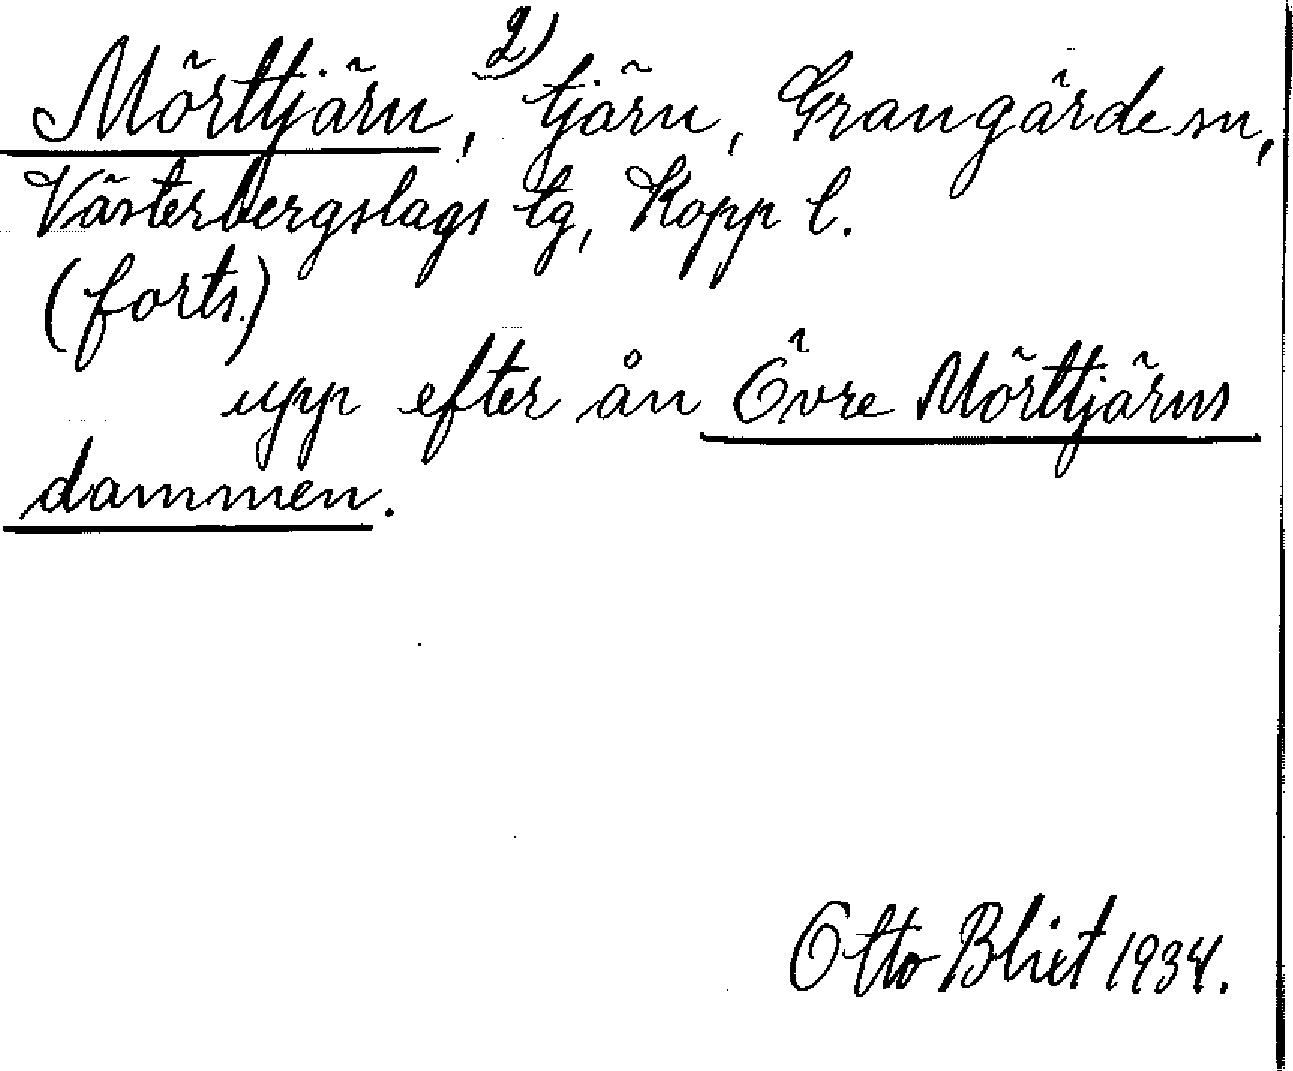 Mörttjärn, 2) tjärn, Grangärde sn,
Västerbergslags tg, Kopp l.
(forts.)
upp efter ån Övre Mörttjärns
dammen.
Otto Blixt 1934.